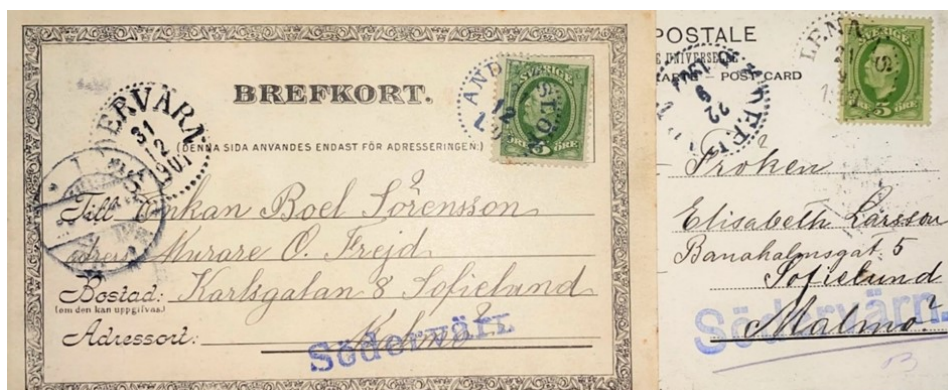 BREFKORT.
(DENNA SIDA ANVANDES ENDAST FÖR ADRESSERINGEN.)
SVERIGE
5 ÖRE
ERVÄRN
31
12
1901
Till Enkan Boel Sörensson
Murare O. Frejd
Bostad: Karlsgatan 8 Sofielund
(om den kan uppgifvas.)
Adressort:
Södervärn
POSTALE
UNIVERSELLE
POST CARD
LENA
21
9
SVERIGE
5 ÖRE
22
9
Fröken
Elisabeth Larsson
Banahalmsgat. 5
Sofielund
Malmö
Södervärn.